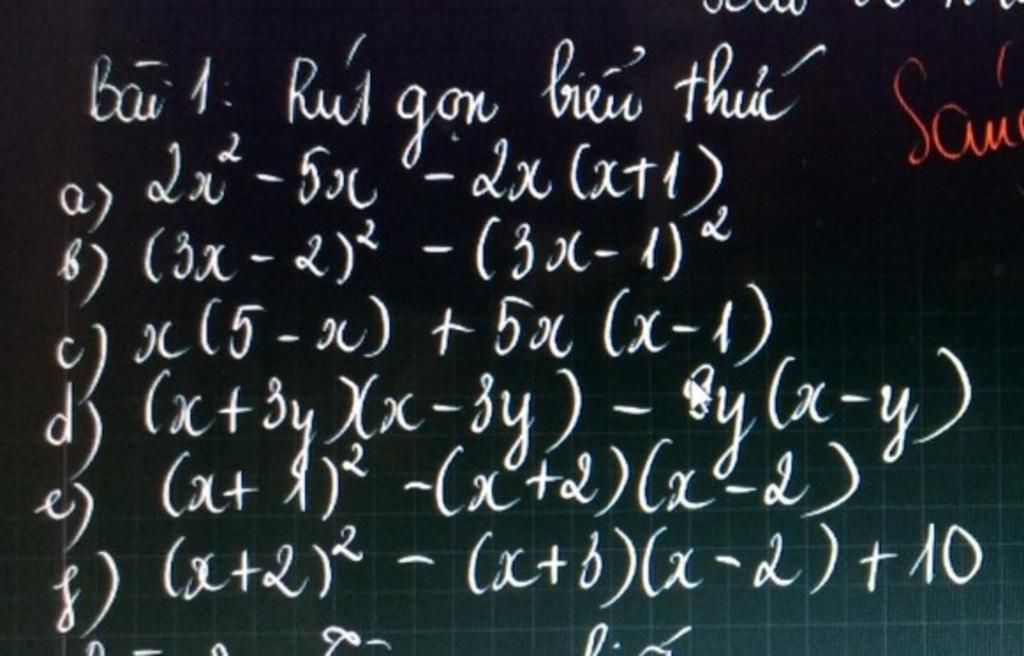 Bài 1: Rút gọn biểu thức
a) 2x² - 5x - 2x(x+1)
b) (3x - 2)² - (3x - 1)²
c) x(5 - x) + 5x (x - 1)
d) (x + 3y)(x - 3y) - y(x - y)
e) (x + 1)² - (x + 2)(x - 2)
f) (x + 2)² - (x + 3)(x - 2) + 10